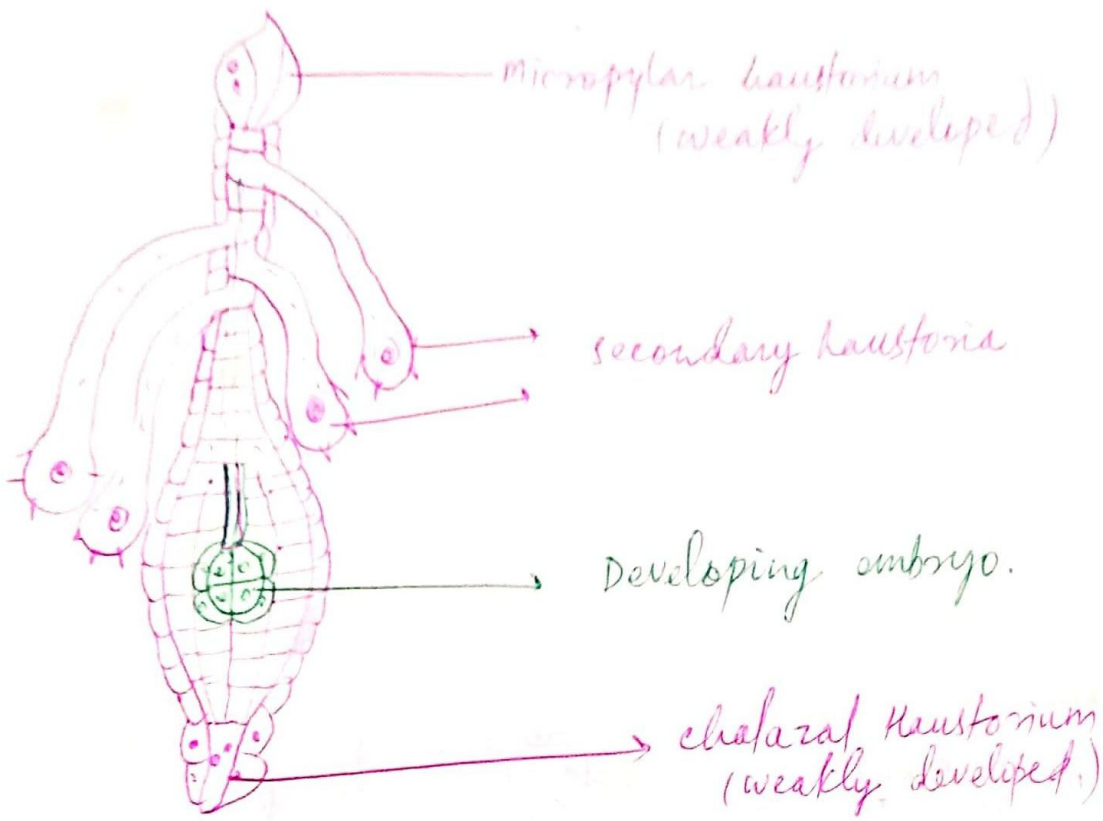 Micropylar haustorium
(weakly developed)
secondary haustoria
Developing embryo.
chalazal Haustorium
(weakly developed.)